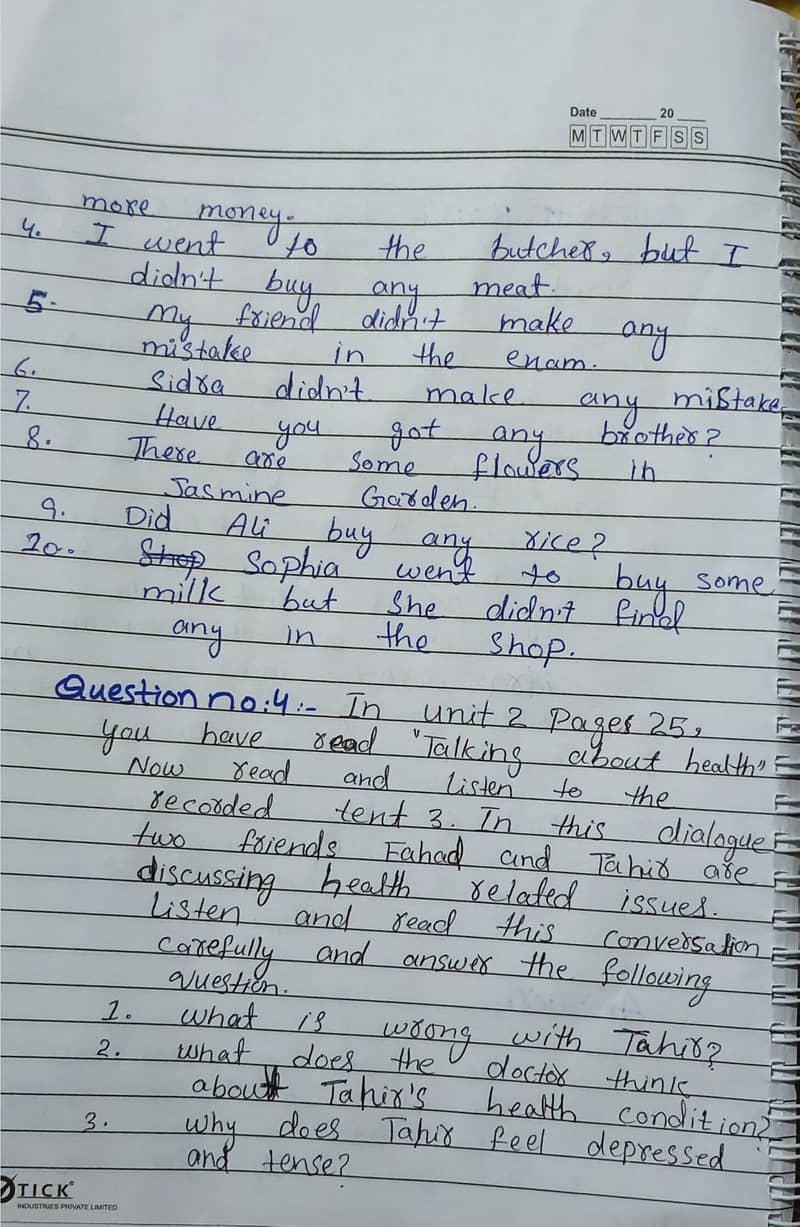 Date ________ 20 ____
M T W T F S S
more money.
4. I went to the butcher, but I
didn't buy any meat.
5. My friend didn't make any
mistake in the enam.
6. Sidra didn't make any mistake
7. Have you got any brother?
8. There are some flowers in
Jasmine Garden.
9. Did Ali buy any rice?
10. Shop Sophia went to buy some
milk but she didn't find
any in the shop.
Question no:4:- In unit 2 Pages 25,
you have read "Talking about health"
Now read and listen to the
recorded tent 3. In this dialogue
two friends Fahad and Tahir are
discussing health related issues.
Listen and read this conversation
carefully and answer the following
question.
1. What is wrong with Tahir?
2. What does the doctor think
about Tahir's health condition?
3. Why does Tahir feel depressed
and tense?
TICK
INDUSTRIES PRIVATE LIMITED